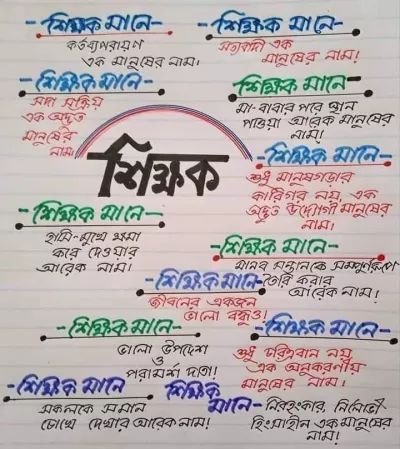 -শিক্ষক মানে-
কর্তব্যপরায়ণ
এক মানুষের নাম।
-শিক্ষক মানে-
সত্যবাদী এক
মানুষের নাম!
-শিক্ষক মানে-
সদা সক্রিয়
এক অদ্ভুত
মানুষের
নাম
শিক্ষক মানে-
মা-বাবার পরে স্থান
পাওয়া আরেক মানুষের
নাম!
শিক্ষক
-শিক্ষক মানে-
শুধু মানুষগড়ার
কারিগর নয়, এক
অদ্ভুত উদ্যোগী মানুষের
নাম!
-শিক্ষক মানে-
হাসি-মুখে ক্ষমা
করে দেওয়ার
আরেক নাম!
-শিক্ষক মানে-
মানব সন্তানকে সম্পূর্ণরূপে
তৈরি করার
আরেক নাম!
-শিক্ষক মানে-
জীবনের একজন
ভালো বন্ধুও!
-শিক্ষক মানে-
ভালো উপদেশ
ও
পরামর্শ দাতা!
-শিক্ষক মানে-
শুধু চরিত্রবান নয়
এক অনুকরণীয়
মানুষের নাম!
-শিক্ষক মানে
সকলকে সমান
চোখে দেখার আরেক নাম!
শিক্ষক
মানে- নিরহংকার, নির্লোভী
হিংসাহীন এক মানুষের
নাম!